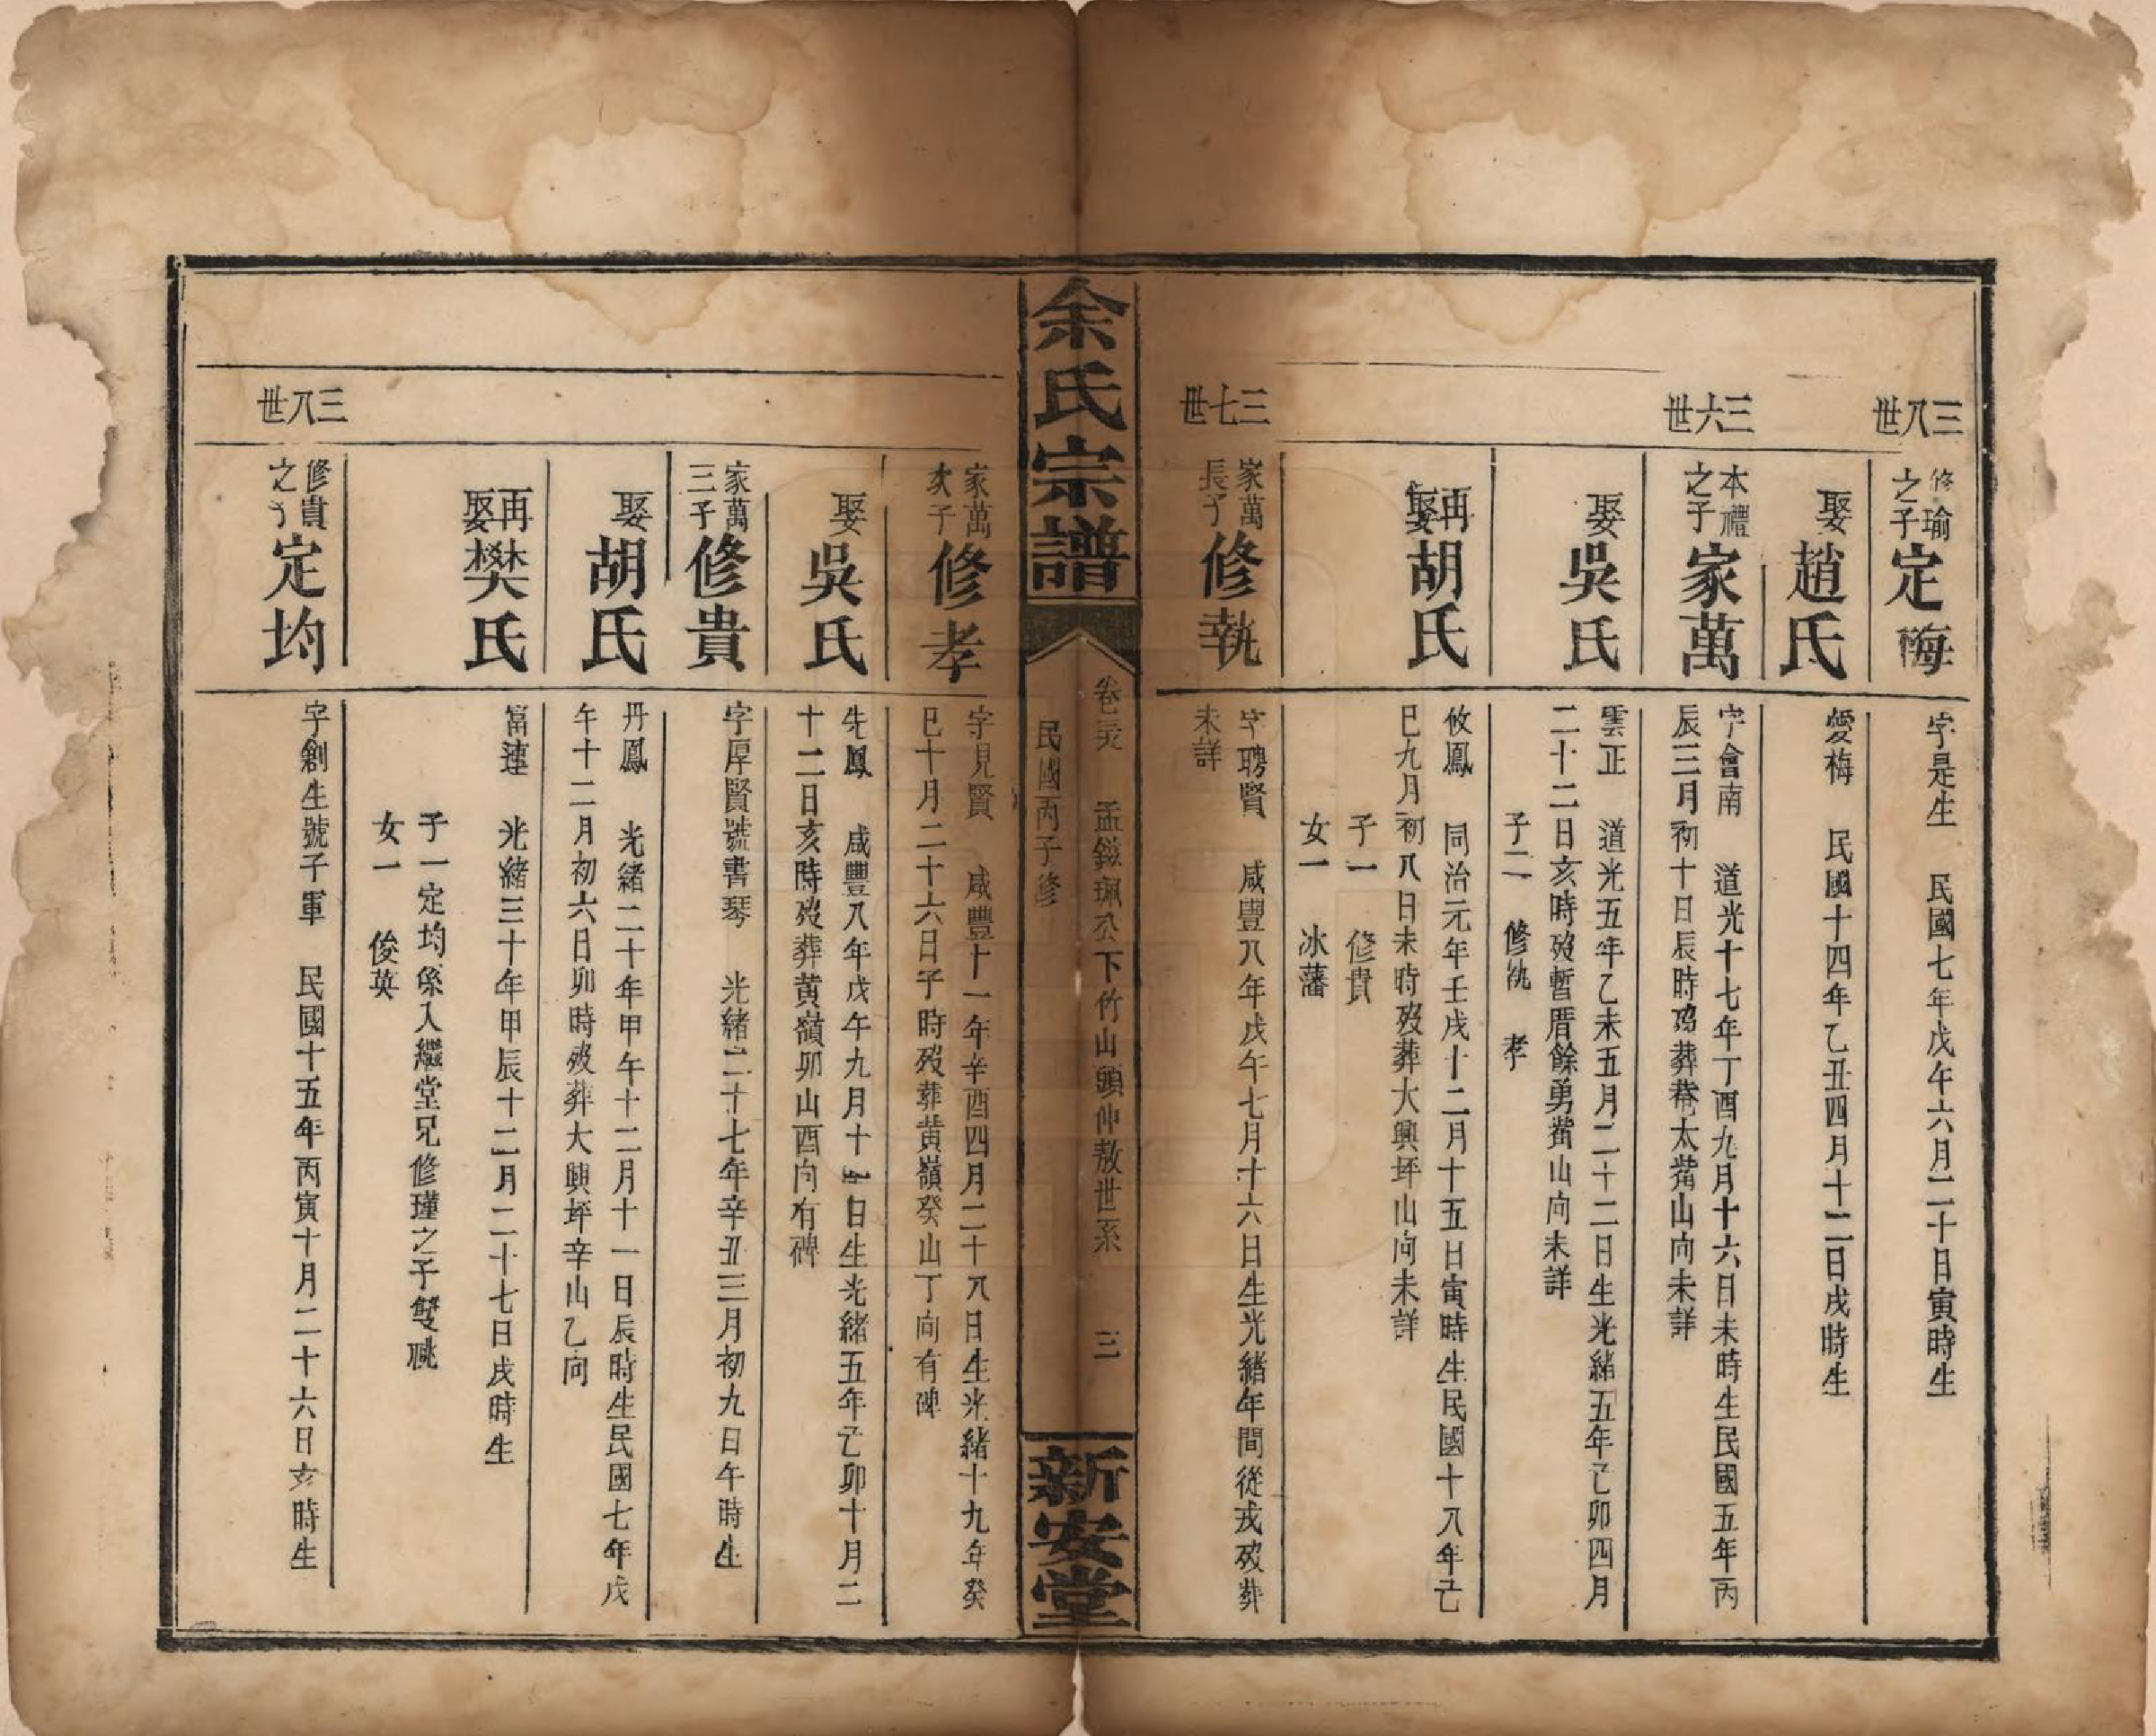 三八世
修瑜之子 定梅
字是生 民國七年戊午六月二十日寅時生
娶 趙氏
愛梅 民國十四年乙丑四月十二日戌時生
三六世
本禮之子 家萬
字會南 道光十七年丁酉九月十六日未時生民國五年丙
辰三月初十日辰時歿葬菴太觜山向未詳
娶 吳氏
雲正 道光五年乙未五月二十二日生光緒五年己卯四月
二十二日亥時歿暫厝餘勇觜山向未詳
子二 修執 孝
再娶 胡氏
攸鳳 同治元年壬戌十二月十五日寅時生民國十八年己
巳九月初八日未時歿葬大興坪山向未詳
子一 修貴
女一 冰藩
三七世
家萬長子 修執
字聘賢 咸豐八年戊午七月十六日生光緒年間從戎歿葬
未詳
余氏宗譜
卷三 孟鎰珮公下竹山頭仲敖世系 三
民國丙子修
新安堂
家萬次子 修孝
字見賢 咸豐十一年辛酉四月二十八日生光緒十九年癸
巳十月二十六日子時歿葬黃嶺癸山丁向有碑
娶 吳氏
先鳳 咸豐八年戊午九月十一日生光緒五年己卯十月二
十二日亥時歿葬黃嶺卯山酉向有碑
家萬三子 修貴
字厚賢號書琴 光緒二十七年辛丑三月初九日午時生
娶 胡氏
丹鳳 光緒二十年甲午十二月十一日辰時生民國七年戊
午十二月初六日卯時歿葬大興坪辛山乙向
再娶 樊氏
富連 光緒三十年甲辰十二月二十七日戌時生
子一定均係入繼堂兄修瑾之子雙祧
女一 俊英
三八世
修貴之子 定均
字創生號子軍 民國十五年丙寅十月二十六日亥時生